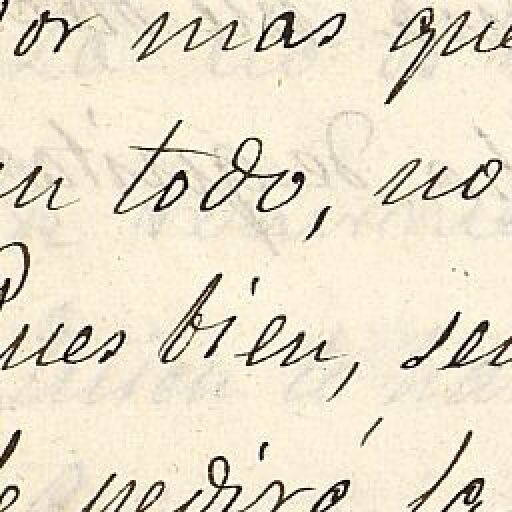 Por mas que
en todo, no
Pues bien, sen
le pediré la